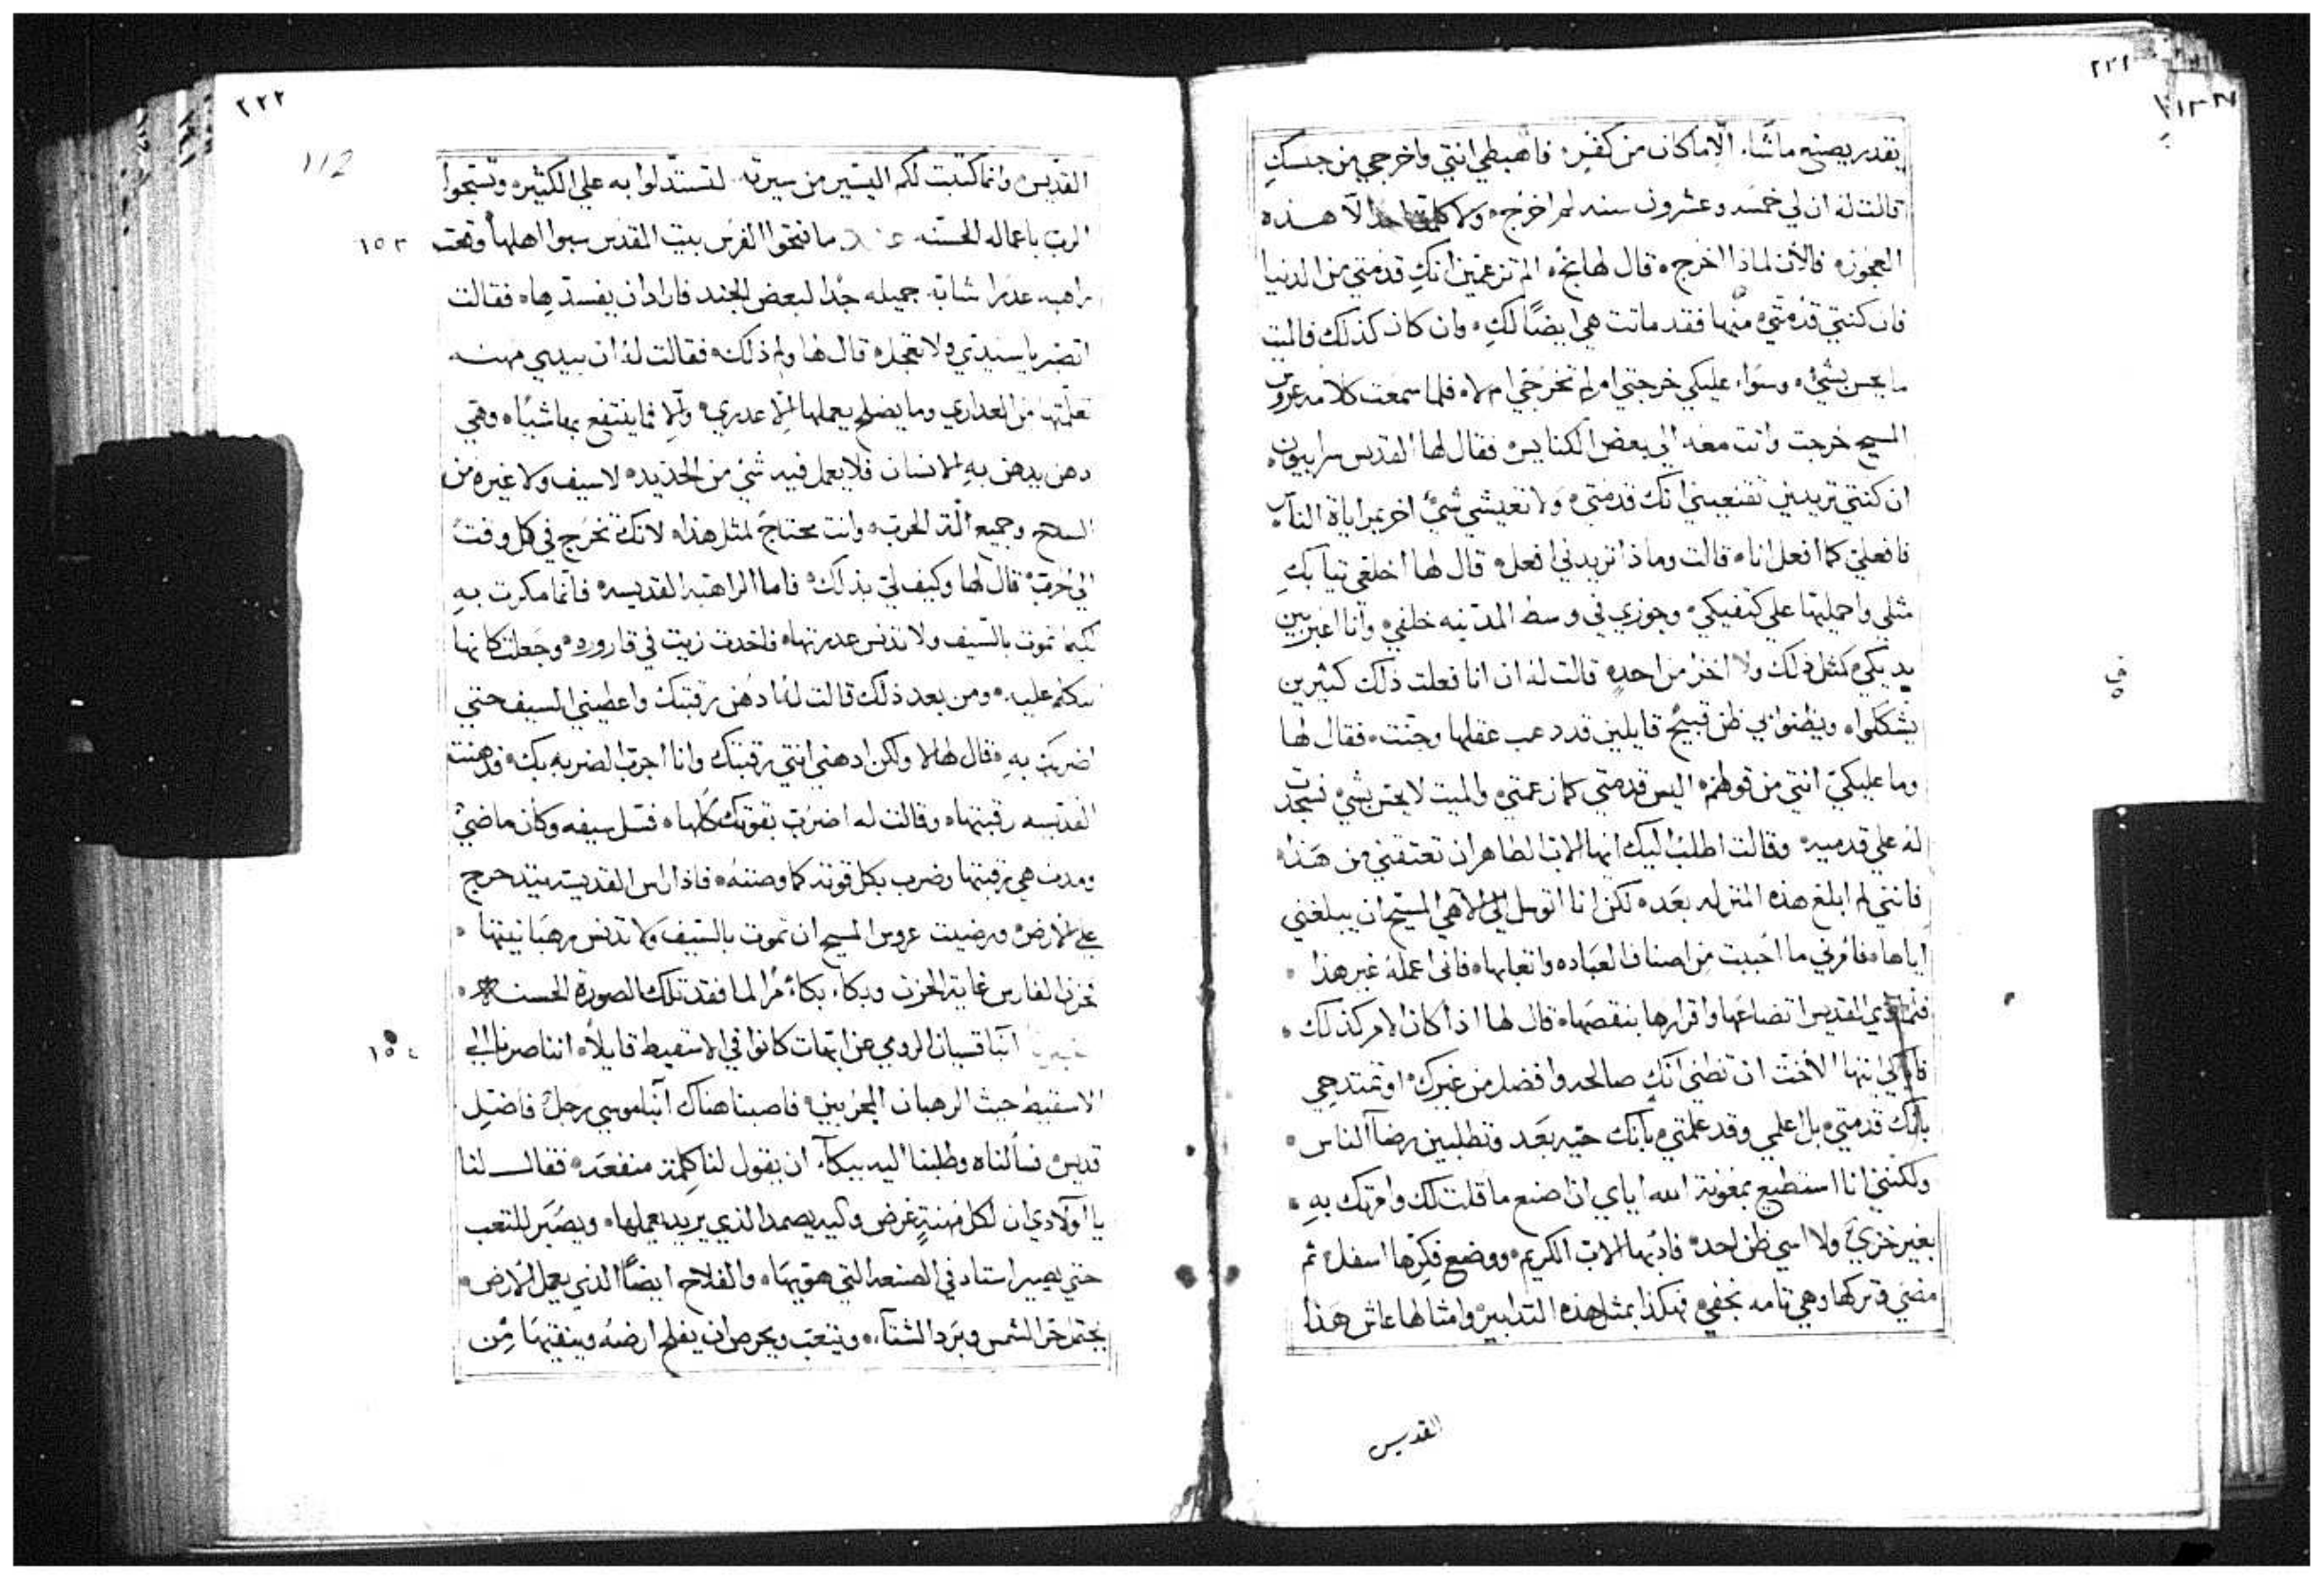 ٢٢١
يقدر يصنع ما شاء. الا ما كان من كفر. فاهبطي انتي واخرجي من حبسكِ
قالت له ان لي خمسه وعشرون سنه لم اخرج. ولا كلمت احدا الا هذه
العجوز. فالان لماذا اخرج. قال لها بخ. الم تزعمين انكِ قدمتي من الدنيا
فان كنتي قدمتي منها فقد ماتت هي ايضًا لكِ. وان كان كذلك فالميت
ما يحس بشيء. وسواء عليكي خرجتي او لم تخرجي ام لا. فلما سمعت كلامه عروس
المسيح خرجت واتت معه الي بعض الكنايس فقال لها القديس سرابيون
ان كنتي تريدين تقنعيني انك قدمتي. ولا تعيشي شيء اخر بمراياة الناس
فافعلي كما افعل انا. قالت وماذا تريدني افعل. قال لها اخلعي تيابكِ
مثلي واحمليها علي كتفيكي. وجوزي في وسط المدينه خلفي. وانا اعبر بين
يديكي كمثل ذلك ولا اخزا من احد. قالت له ان انا فعلت ذلك كثيرين
يشككوا. ويظنوا بي ظن قبيح قايلين قد دهب عقلها وجنت. فقال لها
وما عليكي انتي من قولهم. اليس قدمتي كما زعمتي. والميت لا يحس بشيء فسجدت
له علي قدميه. وقالت اطلب اليك ايها الاب الطاهر ان تعتقني من هذا
فانني لم ابلغ هذه المنزله بعد. لكن انا اتوسل الي الاهي المسيح ان يبلغني
اياها. فامرني ما احببت من اصناف العباده واتعابها. فاني اعمله غير هذا.
فلما القديس اتضاعها واقرارها بنقصها. قال لها اذا كان الامر كذلك.
ايتها الاخت ان تظني انكِ صالحه وافضل من غيرك. او تمتدحي
بانك قدمتي. بل اعلمي وقد علمتي. بانك حيه بعد وتطلبين رضا الناس.
ولكنني انا استطيع بمعونة الله اياي ان اصنع ما قلت لك وامرتك به.
بغير خزي. ولا اسي ظن احد. فادبها الاب الكريم. ووضع فكرها اسفل. ثم
مضي وتركها وهي تامه بخفي. فهكذا بمثل هذه التدابير وامثالها عاش هذا
القديس
٢٢٢
112
القديس. وانما كتبت لكم اليسير من سيرته. لتستدلوا به علي الكثير. وتسبحوا
الرب باعماله الحسنه. ما فتحوا الفرس بيت المقدس سبوا اهلها. وقعت
١٥٣
راهبه عدرا شابه جميله جدًا لبعض الجند فاراد ان يفسدها. فقالت
اتصبر يا سيدي ولا تعجل. قال لها ولم ذلك. فقالت له ان بيدي مهنه
تعلمتها من العداري وما يصلح يعملها الا عدري. والا فما ينتفع بها شيًا. وهي
دهن يدهن به الانسان فلا يعمل فيه شي من الحديد. لا سيف ولا غيره من
السلاح وجميع الة الحرب. وانت محتاج لمثل هذا. لانك تخرج في كل وقت
الي الحرب. قال لها وكيف لي بذلك. فاما الراهبه القديسه. فانما مكرت به
لكيما تموت بالسيف ولا تدنس عدرتها. فاخدت زيت في قاروره. وجعلت كانها
تتكلم عليه. ومن بعد ذلك قالت له ادهن رقبتك واعطيني السيف حتي
اضربك به. قال لها لا ولكن ادهني انتي رقبتك وانا اجرب الضربه بك. فدهنت
القديسه رقبتها. وقالت له اضرب بقوتك كلها. فسل سيفه وكان ماضي
ومدت هي رقبتها وضرب بكل قوته كما وصته. فاذا راس القديسه يتدحرج
علي الارض. ورضيت عروس المسيح ان تموت بالسيف ولا تدنس رهبانيتها.
فحزن الفارس غاية الحزن وبكاء بكاءً مرًا لما فقد تلك الصورة الحسنه.
انبا قسيان الرومي عن ابهات كانوا في الاسقيط قايلاً. اننا صرنا الي
١٥٤
الاسقيط حيث الرهبان المجربين. فاصبنا هناك انبا موسي رجل فاضل
قديس. فسالناه وطلبنا اليه ببكاء. ان يقول لنا كلمة منفعه. فقال لنا
يا اولادي ان لكل مهنةٍ غرض واليه يصمد الذي يريد يعملها. ويصبر للتعب
حتي يصير استاد في الصنعه التي هويها. والفلاح ايضًا الذي يعمل الارض.
يحتمل حر الشمس وبرد الشتاء. ويتعب ويحرص ان يفلح ارضه وينقيها من